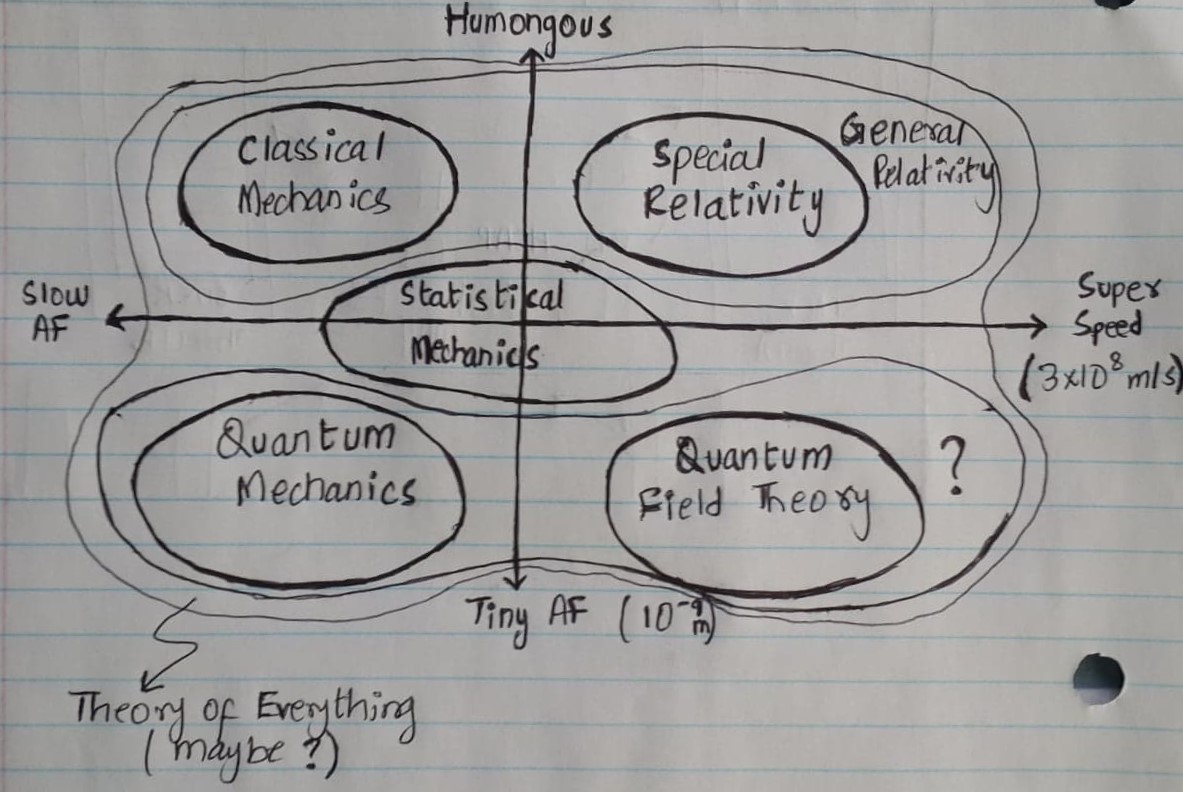 Humongous
Classical
Mechanics
Special
Relativity
General
Relativity
Statistical
Mechanics
Slow
AF
Super
Speed
(3x10⁸ m/s)
Quantum
Mechanics
Quantum
Field Theory
?
Tiny AF (10⁻⁹ m)
Theory of Everything
(maybe ?)